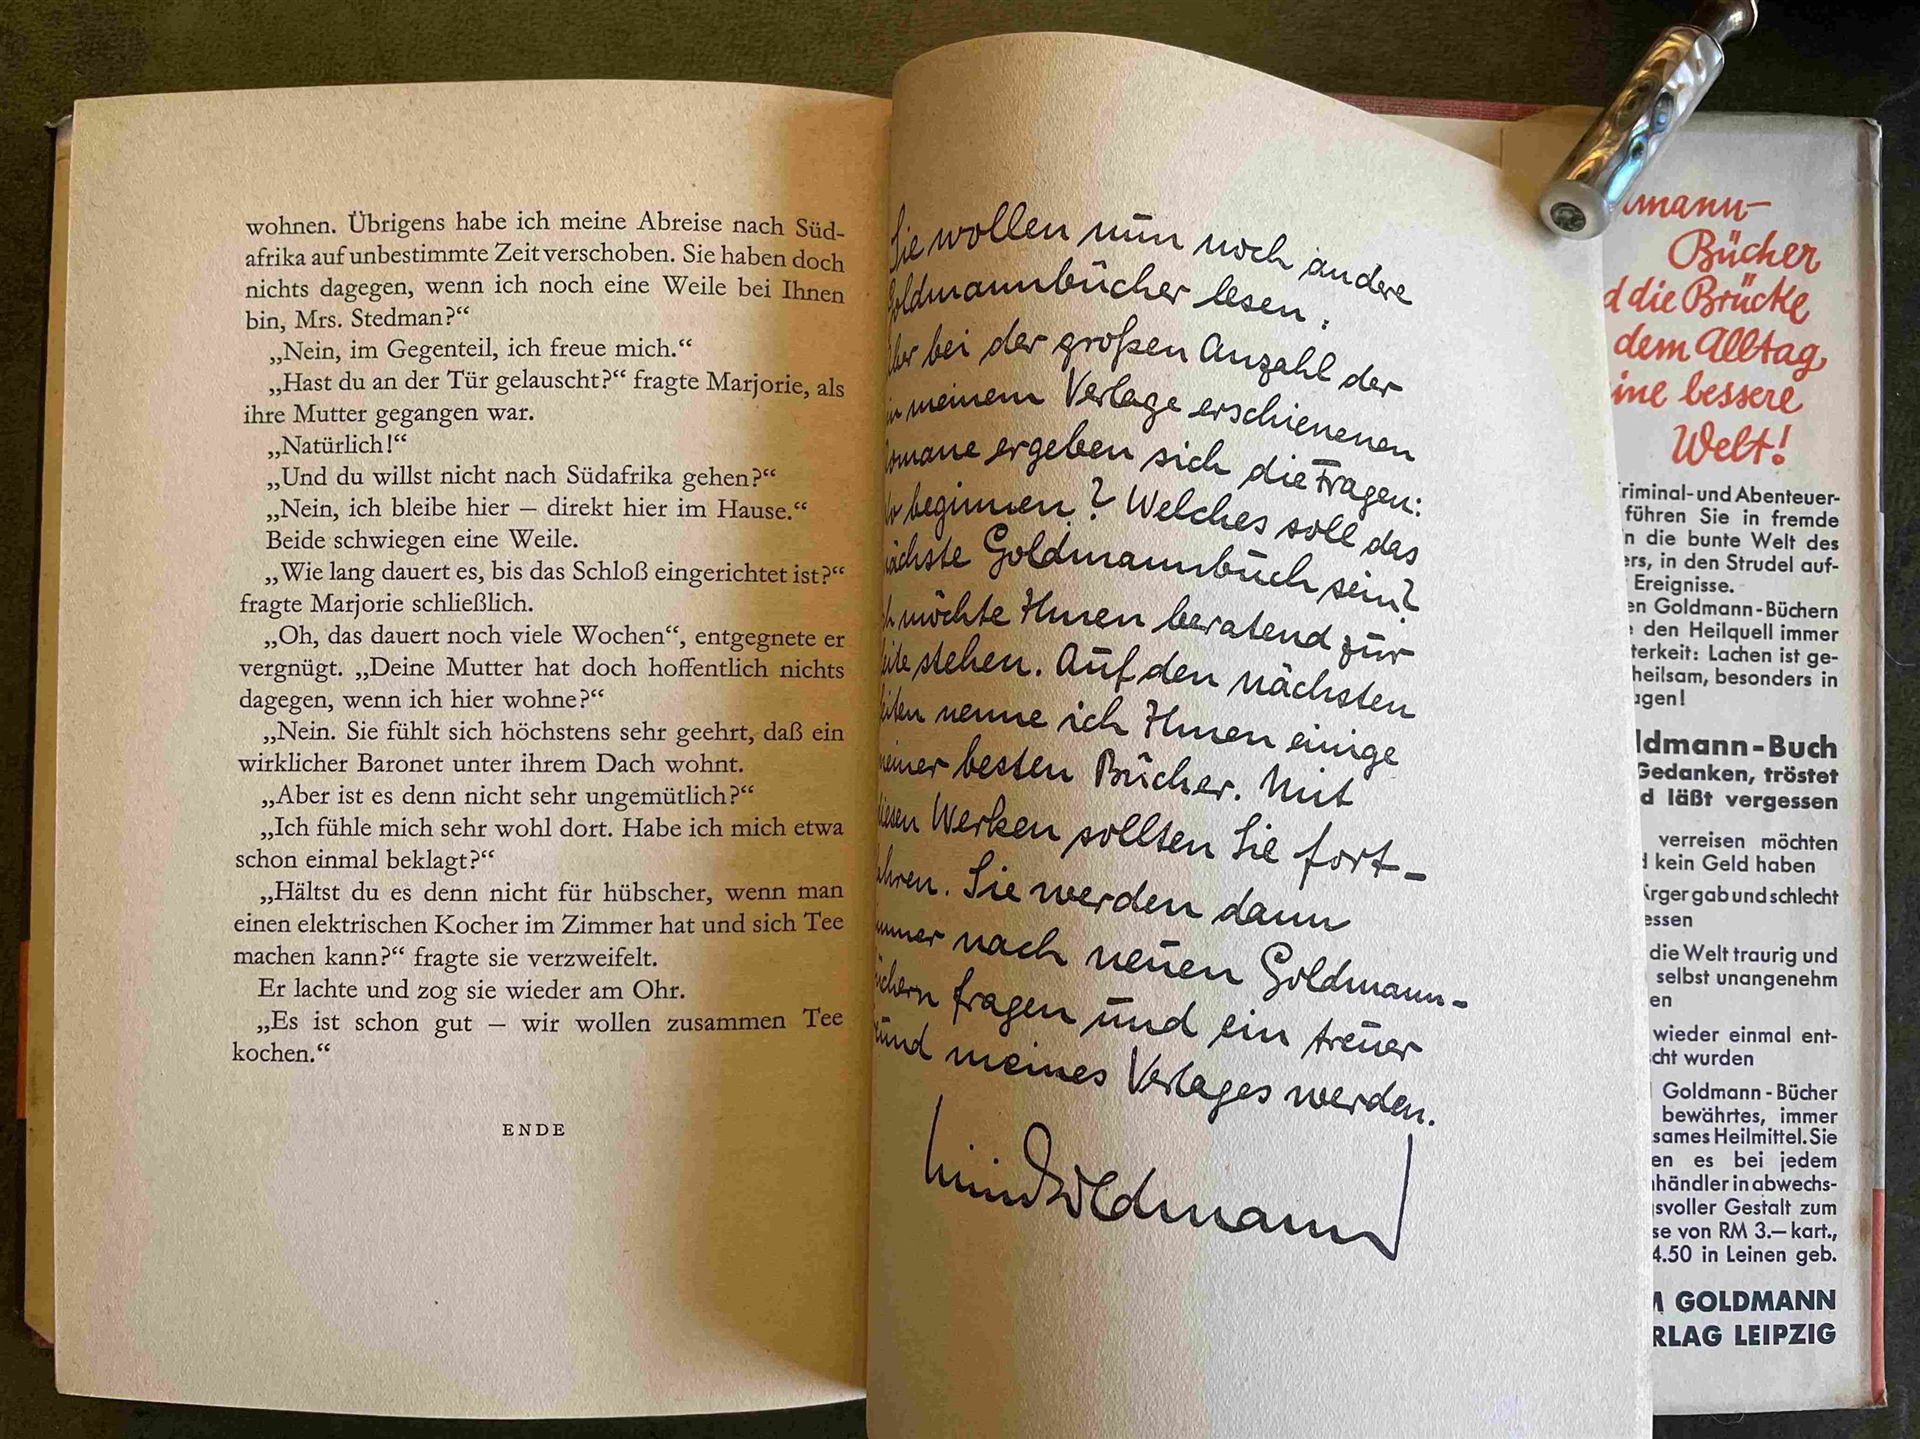 wohnen. Übrigens habe ich meine Abreise nach Süd-
afrika auf unbestimmte Zeit verschoben. Sie haben doch
nichts dagegen, wenn ich noch eine Weile bei Ihnen
bin, Mrs. Stedman?“
„Nein, im Gegenteil, ich freue mich.“
„Hast du an der Tür gelauscht?“ fragte Marjorie, als
ihre Mutter gegangen war.
„Natürlich!“
„Und du willst nicht nach Südafrika gehen?“
„Nein, ich bleibe hier – direkt hier im Hause.“
Beide schwiegen eine Weile.
„Wie lang dauert es, bis das Schloß eingerichtet ist?“
fragte Marjorie schließlich.
„Oh, das dauert noch viele Wochen“, entgegnete er
vergnügt. „Deine Mutter hat doch hoffentlich nichts
dagegen, wenn ich hier wohne?“
„Nein. Sie fühlt sich höchstens sehr geehrt, daß ein
wirklicher Baronet unter ihrem Dach wohnt.
„Aber ist es denn nicht sehr ungemütlich?“
„Ich fühle mich sehr wohl dort. Habe ich mich etwa
schon einmal beklagt?“
„Hältst du es denn nicht für hübscher, wenn man
einen elektrischen Kocher im Zimmer hat und sich Tee
machen kann?“ fragte sie verzweifelt.
Er lachte und zog sie wieder am Ohr.
„Es ist schon gut – wir wollen zusammen Tee
kochen.“
ENDE
Sie wollen nun noch andere
Goldmannbücher lesen.
Aber bei der großen Anzahl der
in meinem Verlage erschienenen
Romane ergeben sich die Fragen:
Wo beginnen? Welches soll das
nächste Goldmannbuch sein?
Ich möchte Ihnen beratend zur
Seite stehen. Auf den nächsten
Seiten nenne ich Ihnen einige
meiner besten Bücher. Mit
diesen Werken sollten Sie fort-
fahren. Sie werden dann
immer nach neuen Goldmann-
büchern fragen und ein treuer
Freund meines Verlages werden.
Goldmann
mann-
Bücher
d die Brücke
dem Alltag
ine bessere
Welt!
riminal- und Abenteuer-
führen Sie in fremde
n die bunte Welt des
ers, in den Strudel auf-
Ereignisse.
en Goldmann-Büchern
den Heilquell immer
terkeit: Lachen ist ge-
heilsam, besonders in
agen!
ldmann-Buch
Gedanken, tröstet
d läßt vergessen
verreisen möchten
d kein Geld haben
Ärger gab und schlecht
essen
die Welt traurig und
selbst unangenehm
en
wieder einmal ent-
cht wurden
Goldmann-Bücher
bewährtes, immer
sames Heilmittel. Sie
en es bei jedem
händler in abwechs-
gsvoller Gestalt zum
se von RM 3.– kart.,
4.50 in Leinen geb.
M GOLDMANN
RLAG LEIPZIG